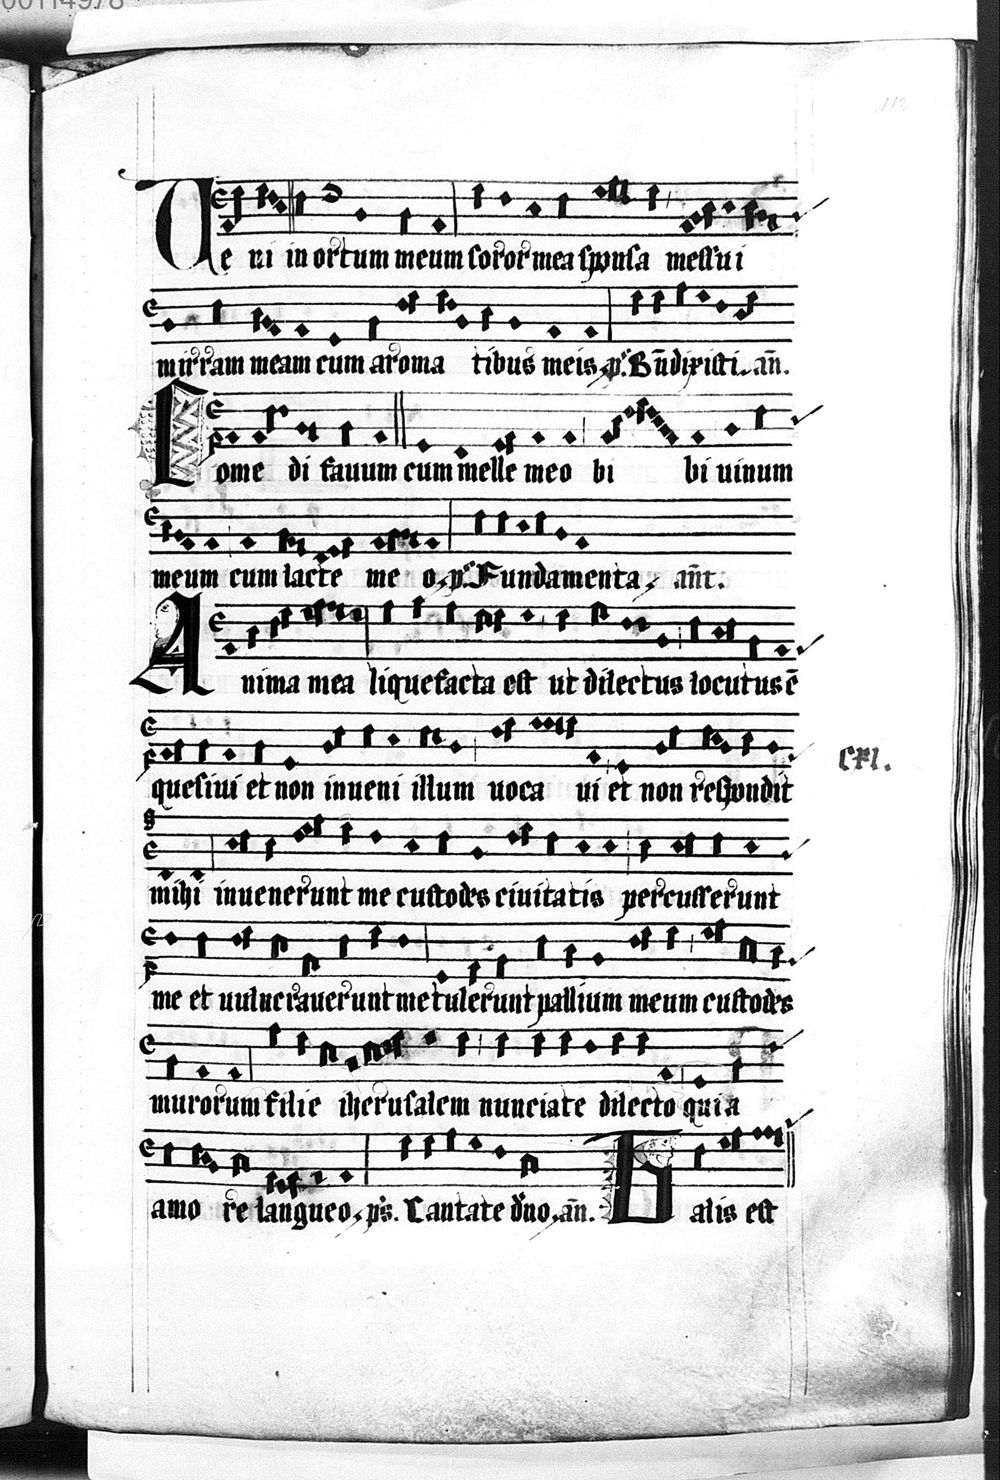 00114978
112
Ve ni in ortum meum soror mea sponsa messui
mirram meam cum aroma tibus meis. ps. Bn̄dixisti. an̄.
Come di fauum cum melle meo bi bi uinum
meum cum lacte me o. ps. Fundamenta. an̄t.
Anima mea liquefacta est ut dilectus locutus ē
quesiui et non inueni illum uoca ui et non respondit
mihi inuenerunt me custodes ciuitatis percusserunt
me et uulnerauerunt me tulerunt pallium meum custodes
murorum filie iherusalem nunciate dilecto quia
amo re langueo. ps. Cantate dn̄o. an̄. Talis est